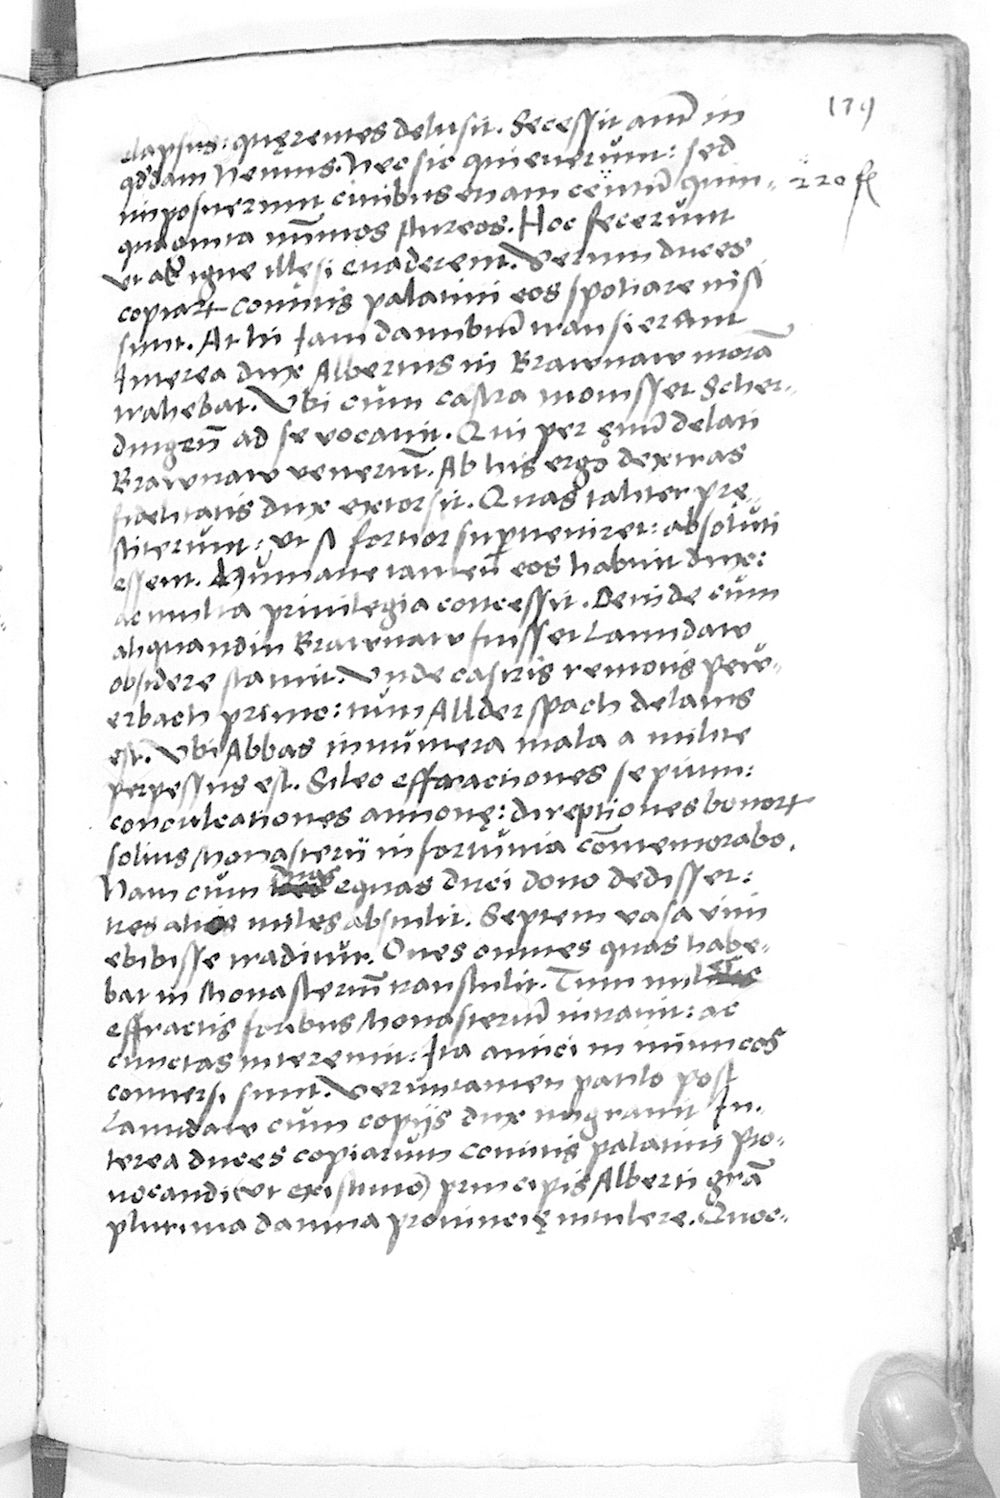 179
elapsus: quęrentes delusit. Secessit aūt in
qd̄dam Nemus. Nec sic quieverunt: sed
imposuerunt civibus etiam centū quin-
220 fl
quaginta nūmos Aureos. Hoc fecerunt
Ut ab igne illęsi evaderent. Verum duces
copiaꝝ Comitis palatini eos spoliare nisi
sunt. At hi Iam danubiū transierant
Interea dux Albertus in Brawnaw morā
trahebat. Ubi cum castra movisset Scher-
dingen̄ ad se vocavit. Qui per ęnū delati
Brawnaw venerūt. Ab his ergo dextras
fidelitatis dux extorsit. Quas taliter prę-
stiterunt: ut si fortior supveniret: absoluti
essent. Humane tamen̄ eos habuit dux:
ac multa privilegia concessit. Deinde cum
aliquandiu Brawnaw fuisset Lanndaw
obsidere statuit. Unde castris remotis pew-
erbach primo: tum Allderspach delatus
est. Ubi Abbas innumera mala a milite
perpessus est. Sileo effractiones sepium:
conculcationes annonę: direptiones bonoꝝ
solius Monasterii infortunia cōmemorabo.
Nam cum duas equas duci dono dedisset:
tres alias miles abstulit. Septem vasa vini
ebibisse traditur. Oves omnes quas habe-
bat in Monasteriū transtulit. Tum miles
effractis foribus Monasteriū intravit: ac
cunctas interemit: Ita amici in inimicos
conversi sunt. Veruntamen paulo post
Lanndaw cum copiis dux migravit In-
terea duces copiarum Comitis palatini pro-
vocandi (ut existimo) principis Alberti grā
plurima damna provincię intulere. Quoc-